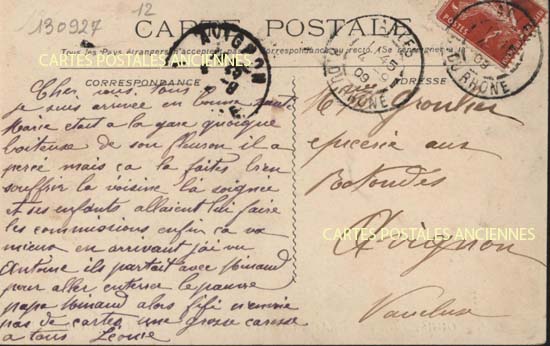 130927
12
CARTE POSTALE
Tous les Pays étrangers n'acceptent pas la Correspondance au recto. (Se renseigner à la
CORRESPONDANCE
ADRESSE
AVIGNON
ARLES
DU RHONE
09
DU RHONE
Cher tous
je suis arrivée en bonne santé
Marie était a la gare quoique
boiteuse de son furon il a
percé mais ça la faites bien
souffrir la voisine la soignee
et ses enfants allaient lui faire
les commissions enfin ça va
mieux en arrivant j'ai vu
Antoine ils partait avec Minaud
pour aller enterrer le pauvre
papa Minaud alors fifi
pas de cartes une grosse caresse
a tous Léonie
Groulier
epicerie aux
Rotondes
Avignon
Vaucluse
CARTES POSTALES ANCIENNES
CARTES POSTALES ANCIENNES
CARTES POSTALES ANCIENNES